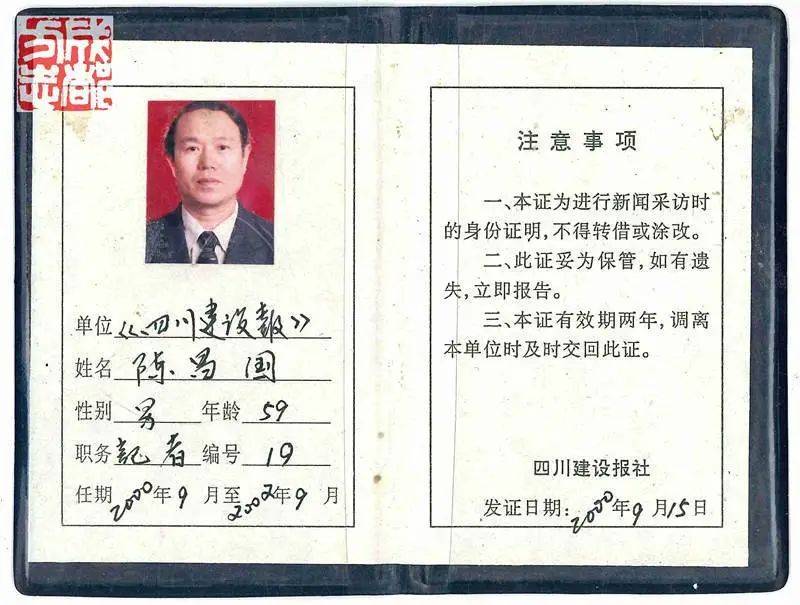 成都
方志
单位《四川建设報》
姓名 陈昌国
性别 男 年龄 59
职务 記者 编号 19
任期2000年9月至2002年9月
注意事项
一、本证为进行新闻采访时
的身份证明,不得转借或涂改。
二、此证妥为保管,如有遗
失,立即报告。
三、本证有效期两年,调离
本单位时及时交回此证。
四川建设报社
发证日期:2000年9月15日